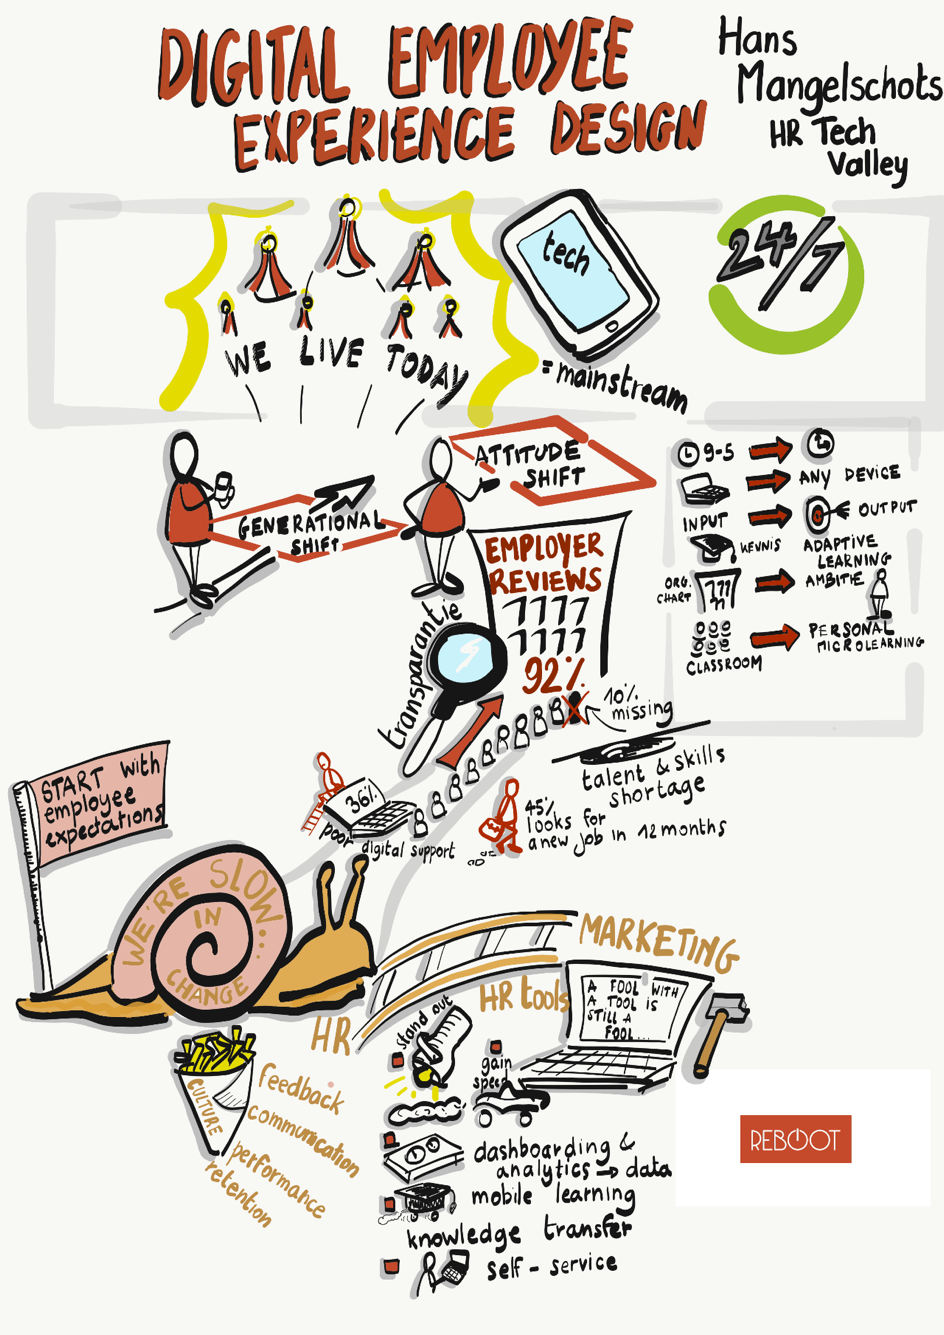 DIGITAL EMPLOYEE
EXPERIENCE DESIGN
Hans
Mangelschots
HR Tech
Valley
WE LIVE TODAY
tech
= mainstream
24/7
GENERATIONAL
SHIFT
ATTITUDE
SHIFT
9-5
ANY DEVICE
INPUT
OUTPUT
KENNIS
ADAPTIVE
LEARNING
ORG.
CHART
AMBITIE
CLASSROOM
PERSONAL
MICROLEARNING
EMPLOYER
REVIEWS
92%
transparantie
10%
missing
talent & skills
shortage
36%
poor digital support
45%
looks for
a new job in 12 months
START with
employee
expectations
WE'RE SLOW...
IN
CHANGE
HR
MARKETING
HR tools
A FOOL WITH
A TOOL IS
STILL A
FOOL...
CULTURE
feedback
communication
performance
retention
stand out
gain
speed
dashboarding &
analytics → data
mobile learning
knowledge transfer
self - service
REBOOT